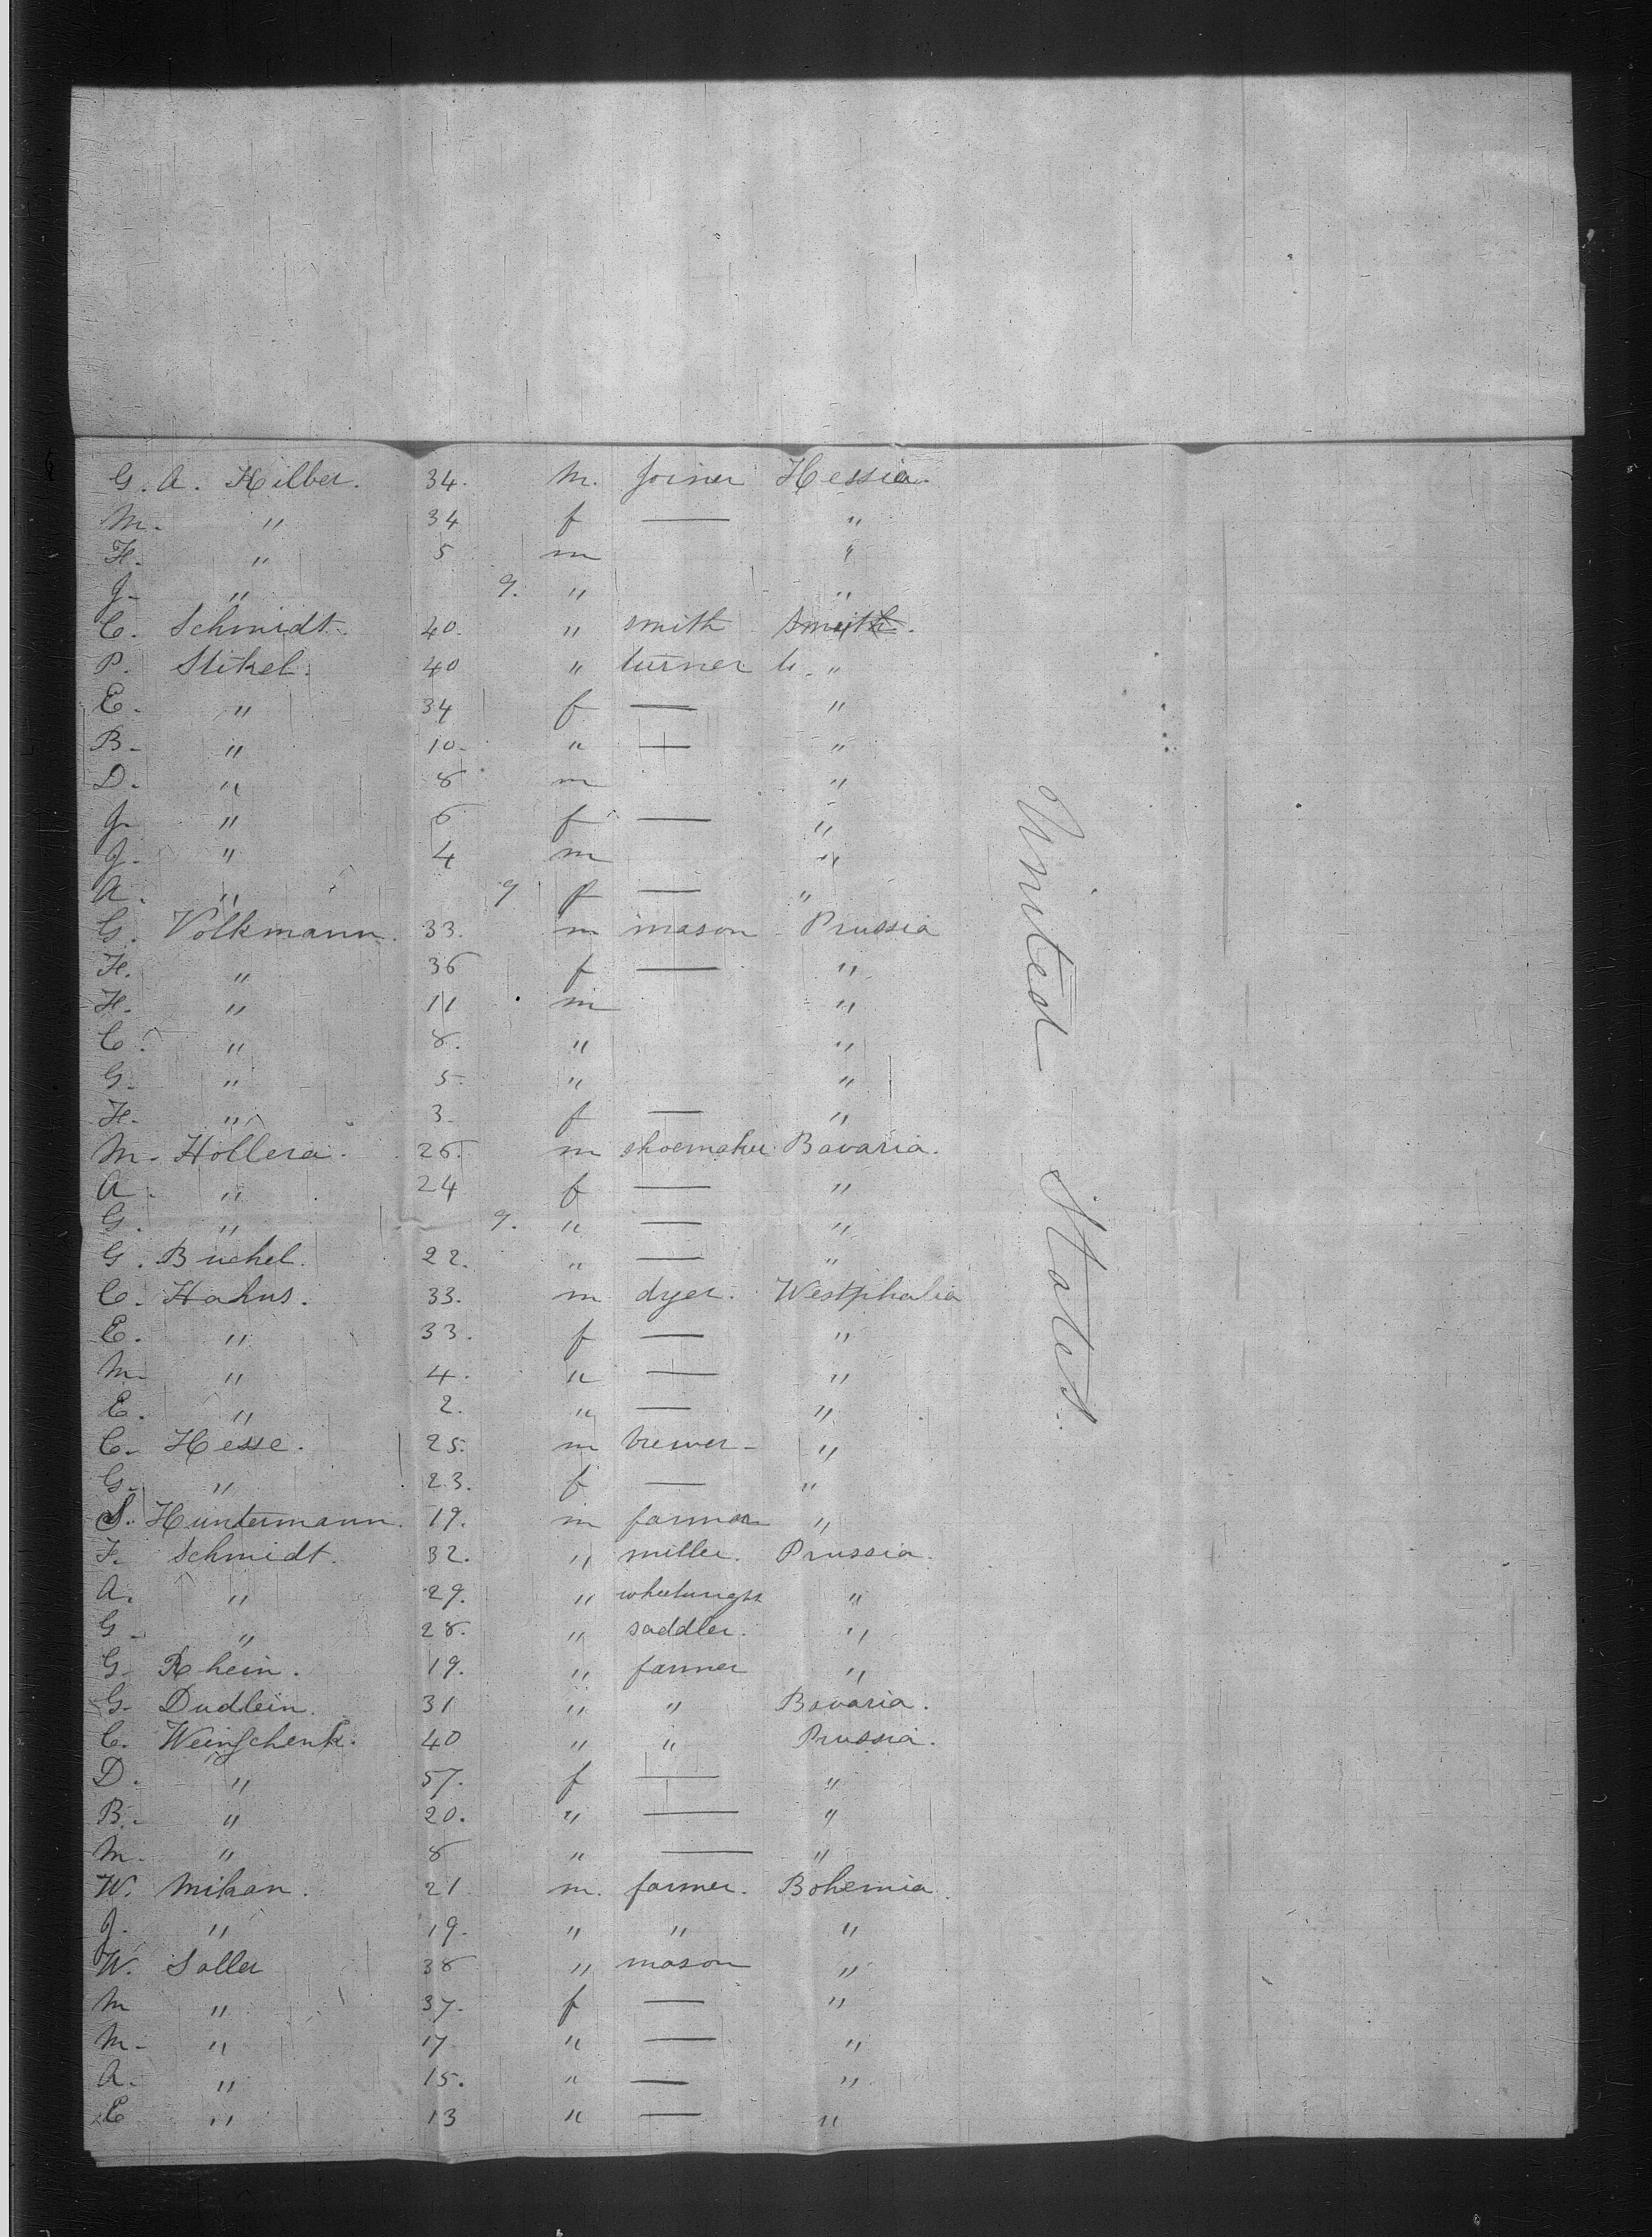 G. A. Hilber. 34. M. Joiner Hessia.
M. " 34 f — "
H. " 5 m "
J. " 9. " "
C. Schmidt. 40. " smith Smith.
P. Stikel. 40 " turner "
E. " 34 f — "
B. " 10. " — "
D. " 8 m "
J. " 6 f — "
J. " 4 m "
A. " 9 f — "
G. Volkmann. 33. m mason Prussia
H. " 36 f — "
H. " 11 m "
C. " 8. " "
G. " 5. " "
H. " 3. f — "
M. Hollera. 26. m shoemaker Bavaria.
A. " 24 f — "
G. " 9. " — "
G. Buchel. 22. " — "
C. Hahus. 33. m dyer. Westphalia
E. " 33. f — "
M. " 4. " — "
E. " 2. " — "
C. Hesse. 25. m brewer "
G. " 23. f — "
S. Huntermann. 19. m farmer "
F. Schmidt. 32. " miller. Prussia.
A. " 29. " "
G. " 28. " saddler. "
G. Rhein. 19. " farmer "
G. Dudlein. 31 " " Bavaria.
C. Weinschenk. 40 " " Prussia.
D. " 57. f — "
B. " 20. " — "
M. " 8 " — "
W. Mikan. 21 m. farmer. Bohemia.
J. " 19. " " "
W. Saller 38 " mason "
M " 37. f — "
M. " 17 " — "
A. " 15. " — "
E " 13 " — "
United States.